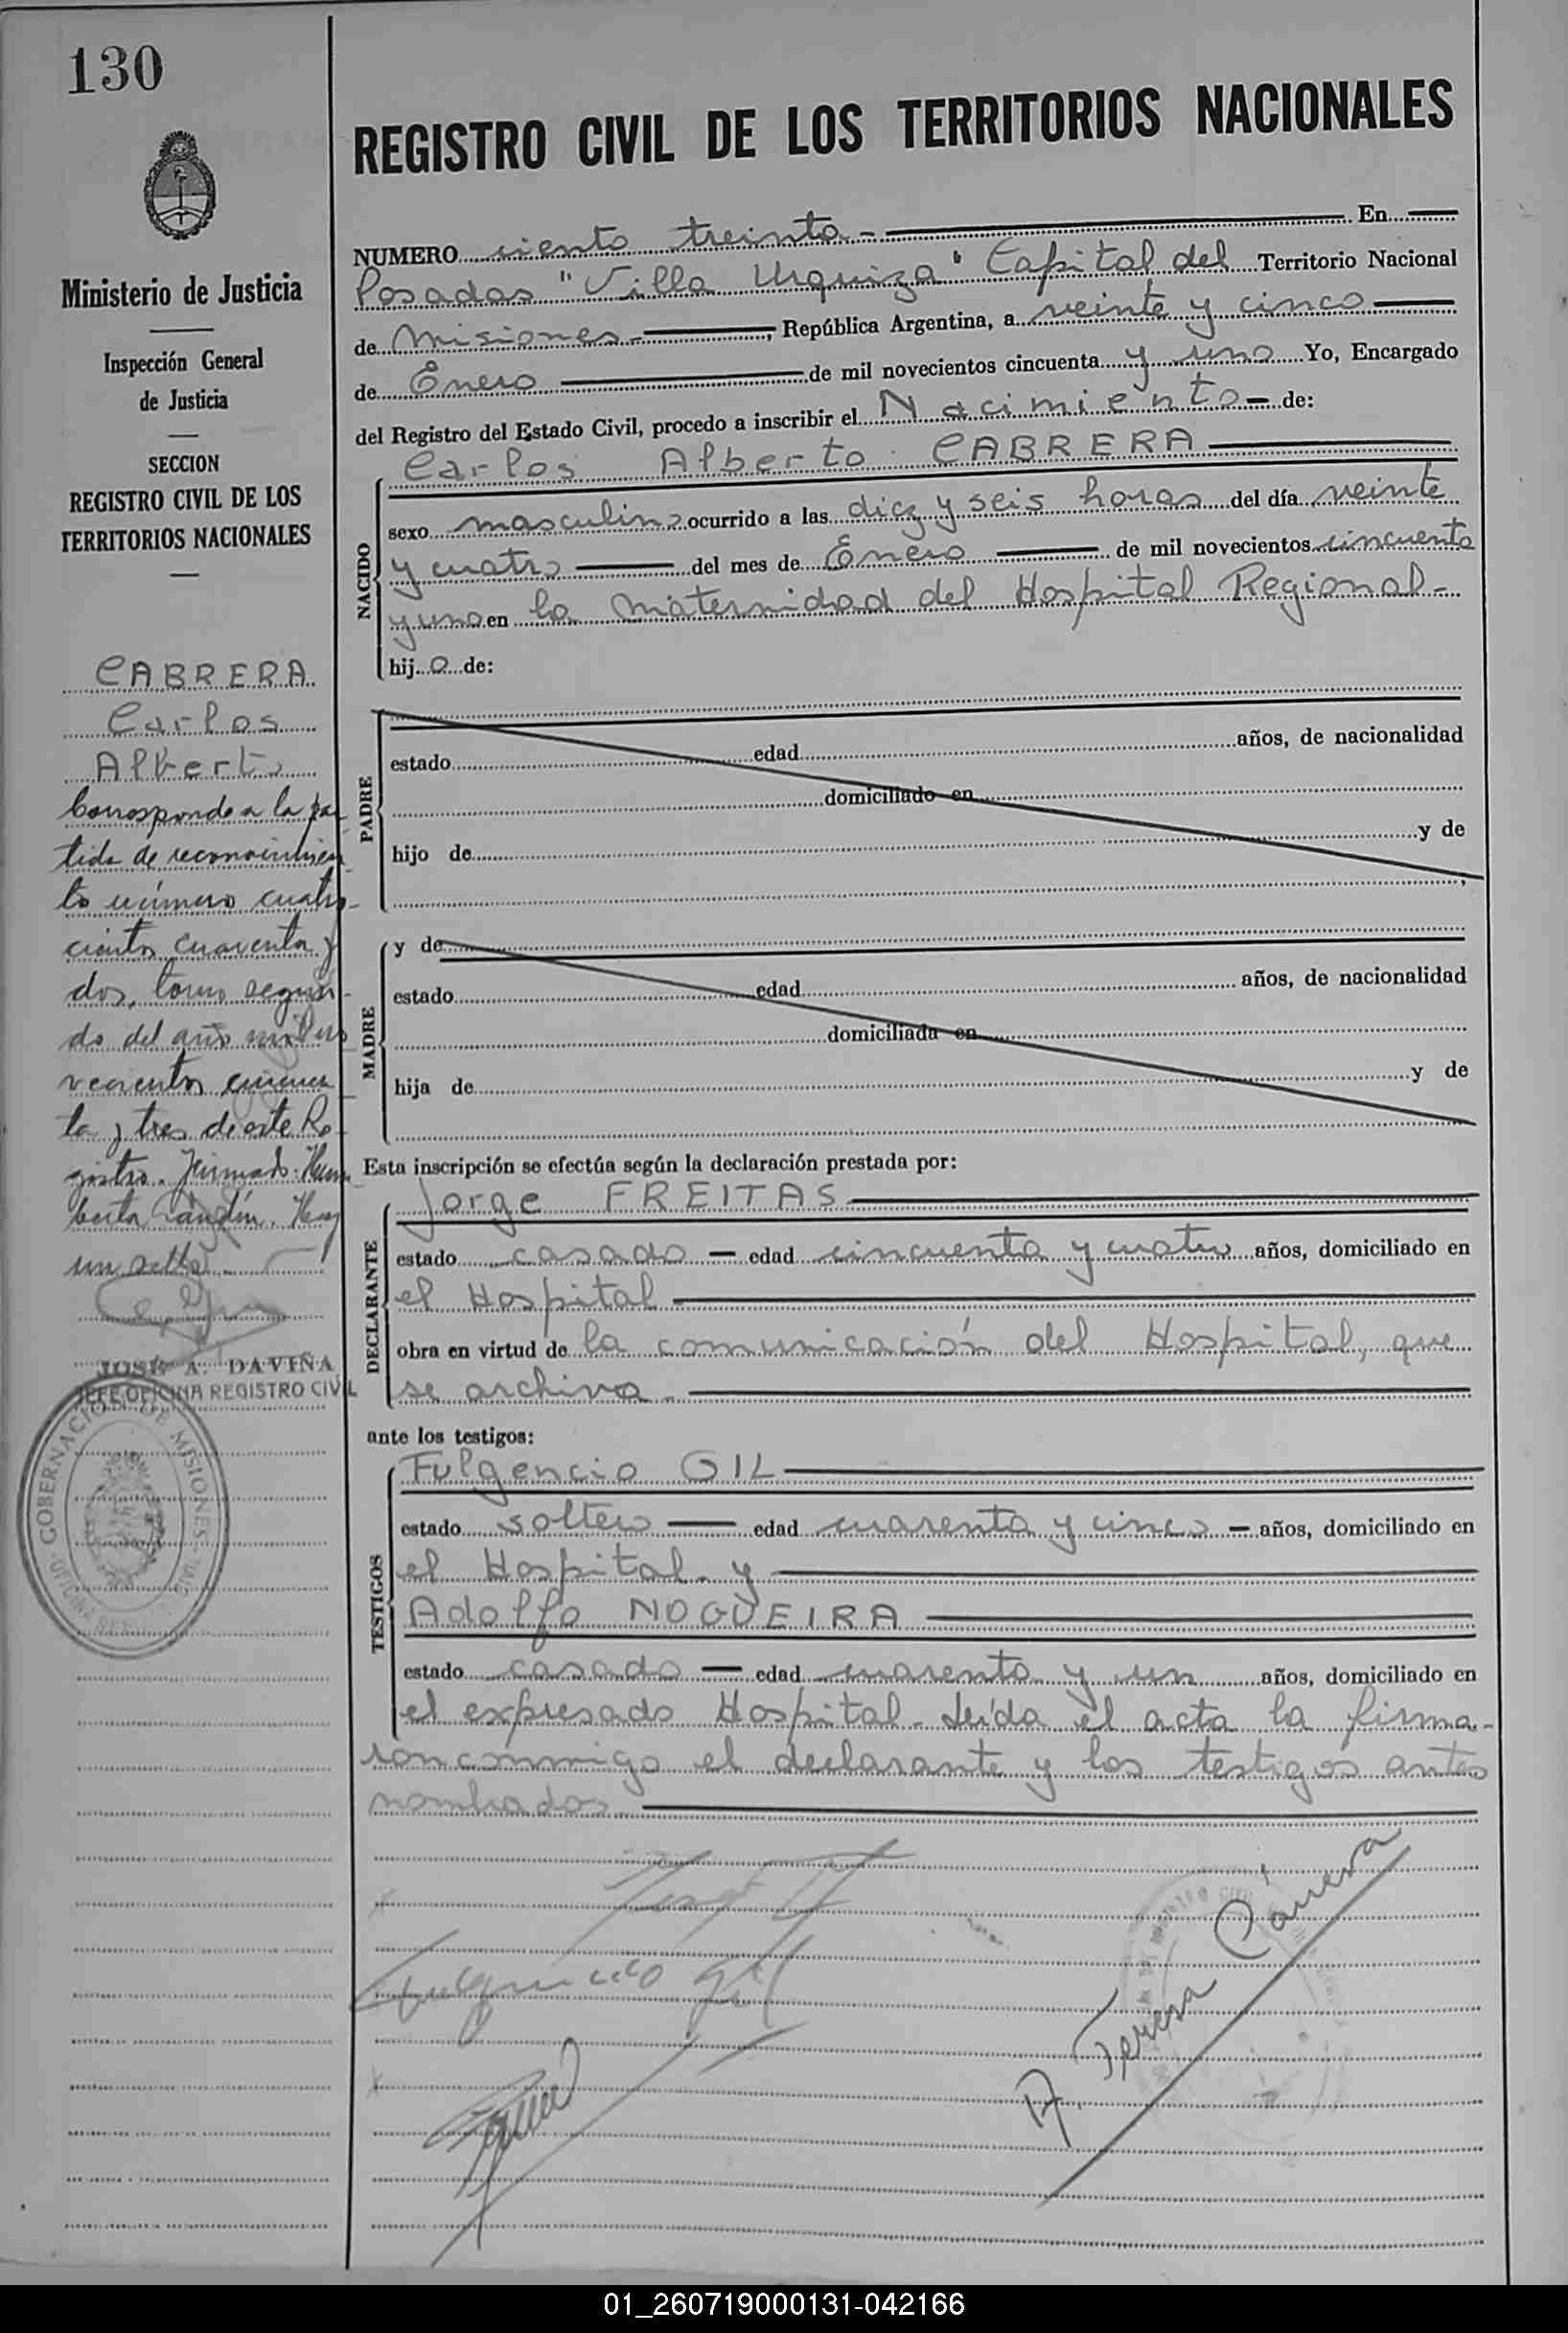 130
REGISTRO CIVIL DE LOS TERRITORIOS NACIONALES
Ministerio de Justicia
Inspección General
de Justicia
SECCION
REGISTRO CIVIL DE LOS
TERRITORIOS NACIONALES
CABRERA
Carlos
Alberto
Corresponde a la par
tida de reconocimien
to número cuatro-
cientos cuarenta y
dos, tomo segun-
do del año mil no
vecientos cincuen
ta y tres de este Re
gistro. Firmado: Hum
berto . Hay
un sello.
JOSE A. DAVIÑA
JEFE OFICINA REGISTRO CIVIL
GOBERNACION DE MISIONES
OFICINA
NUMERO ciento treinta - En
Posadas "Villa Urquiza" Capital del Territorio Nacional
de Misiones - , República Argentina, a veinte y cinco
de Enero de mil novecientos cincuenta y uno Yo, Encargado
del Registro del Estado Civil, procedo a inscribir el Nacimiento - de:
NACIDO
Carlos Alberto CABRERA
sexo masculino ocurrido a las diez y seis horas del día veinte
y cuatro del mes de Enero de mil novecientos cincuenta
y uno en la Maternidad del Hospital Regional -
hij o de:
PADRE
estado edad años, de nacionalidad
domiciliado en
hijo de y de
MADRE
y de
estado edad años, de nacionalidad
domiciliada en
hija de y de
Esta inscripción se efectúa según la declaración prestada por:
DECLARANTE
Jorge FREITAS
estado casado - edad cincuenta y cuatro años, domiciliado en
el Hospital
obra en virtud de la comunicación del Hospital, que
se archiva.
ante los testigos:
TESTIGOS
Fulgencio GIL
estado soltero edad cuarenta y cinco - años, domiciliado en
el Hospital y
Adolfo NOGUEIRA
estado casado - edad cuarenta y un años, domiciliado en
el expresado Hospital - Leída el acta la firma-
ron conmigo el declarante y los testigos antes
nombrados.
Fulgencio Gil
A. Teresa
01_260719000131-042166